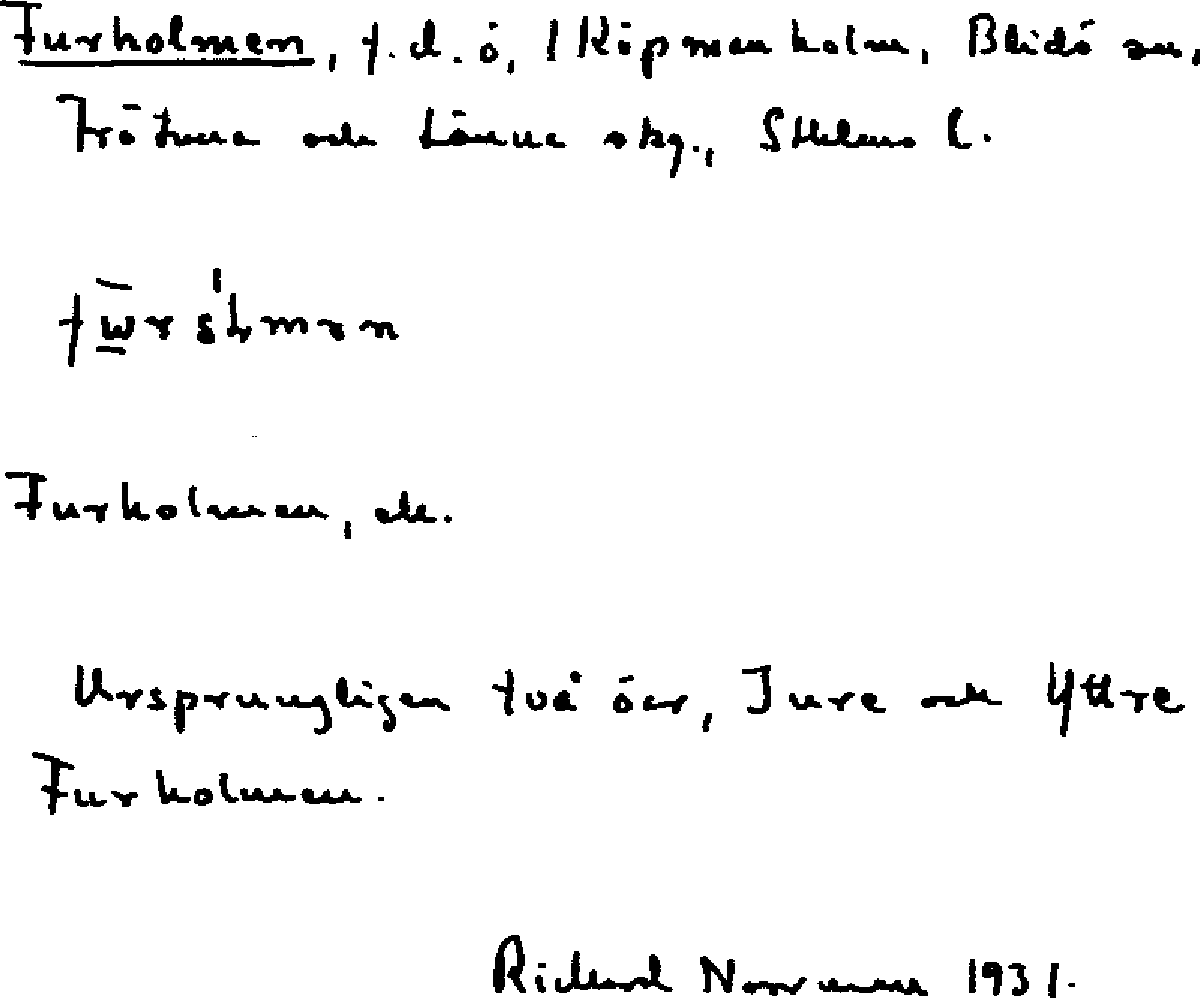 Furholmen, f.d. ö, 1 Köpmanholm, Blidö sn,
Frötuna och Länna skg., Sthlms l.
Furholmen, ek.
Ursprungligen två öar, Inre och Yttre
Furholmen.
Rickard Norrman 1931.